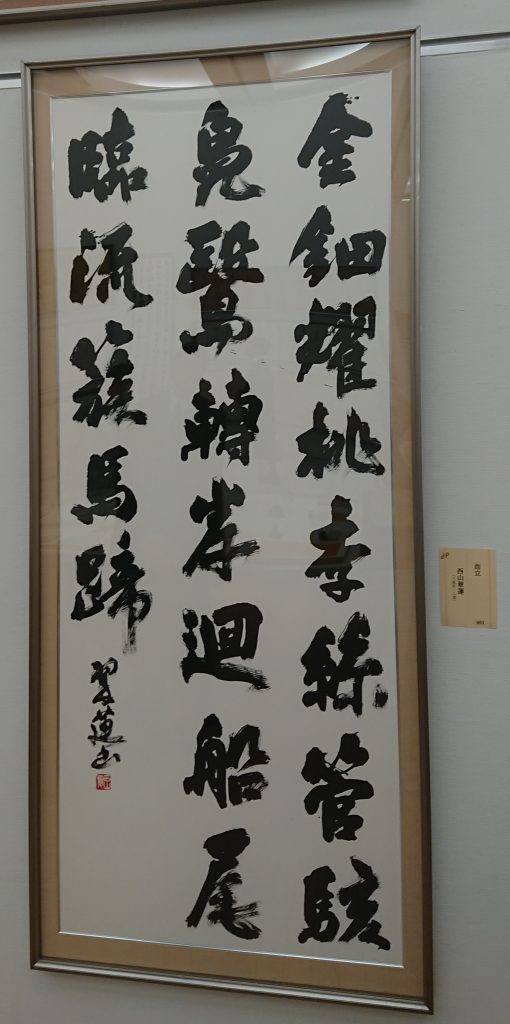 金鈿耀桃李絲管駭
鳧鷖轉岸迴船尾
臨流簇馬蹄
翠蓮書
西山翠蓮